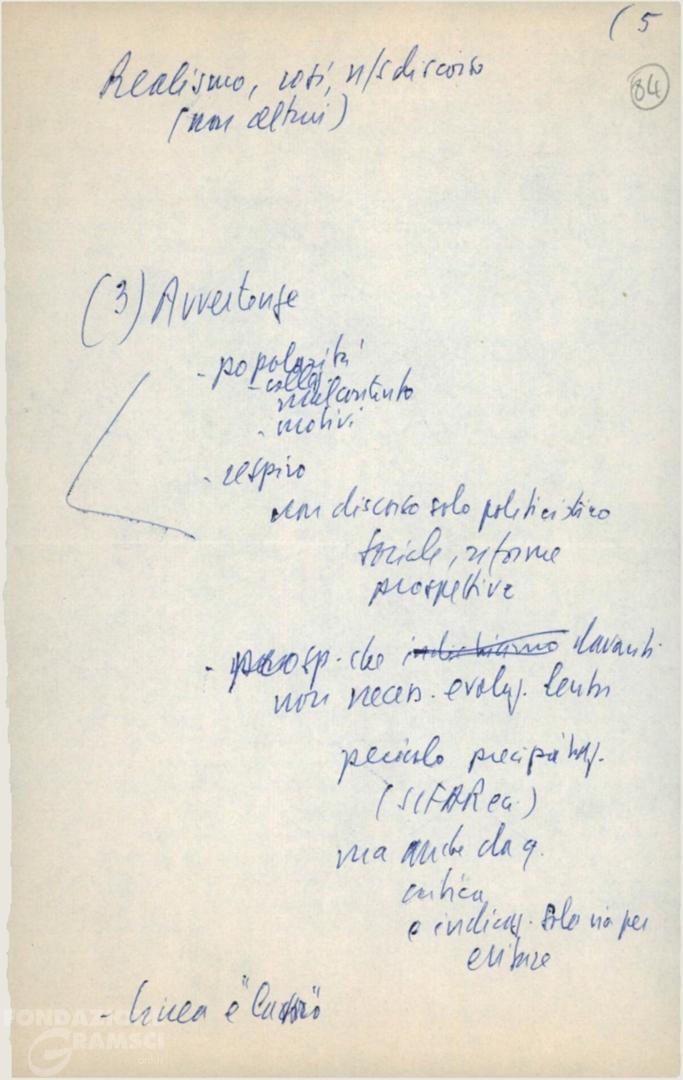 (5
84
Realismo, così, n/s discorso
(non altrui)
(3) Avvertenze
- popolarità
- colleg.
malcontento
- motivi
- respiro
non discorso solo politicistico
sociale, riforme
prospettive
- prosp. che davanti.
non necess. evoluz. lenta
pericolo precipitaz.
(SIFAR ecc.)
ma anche da q.
critica
e indicaz. sola via per
evitare
- Linea è
FONDAZIONE
GRAMSCI